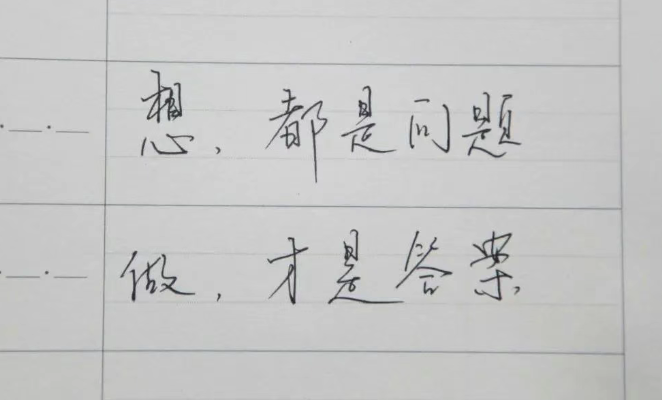 想,都是问题
做,才是答案.